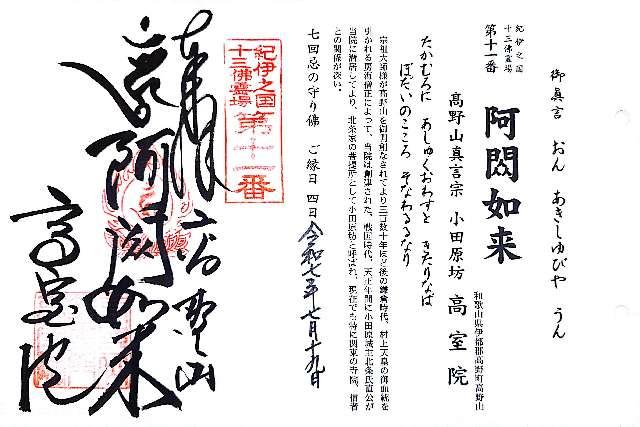 御真言 おん あきしゅびや うん
紀伊之国
十三佛霊場
第十一番
阿閦如来
和歌山県伊都郡高野町高野山
高野山真言宗 小田原坊 高室院
たかむろに あしゅくおわすと きたりなば
ぼだいのこころ そなわるなり
宗祖大師様が高野山を御開創なされてより三百数十年ほど後の鎌倉時代、村上天皇の御血統を
引かれる房海僧正によって、当院は創建された。戦国時代、天正年間に小田原城主北条氏直公が
当院に滞居してより、北条家の菩提所として小田原坊と呼ばれ、現在でも特に関東の寺院、信者
との関係が深い。
七回忌の守り佛 ご縁日 四日
令和七年七月十九日
紀伊之国
十三佛霊場
第十一番
奉拝
高野山
阿閦如来
高室院